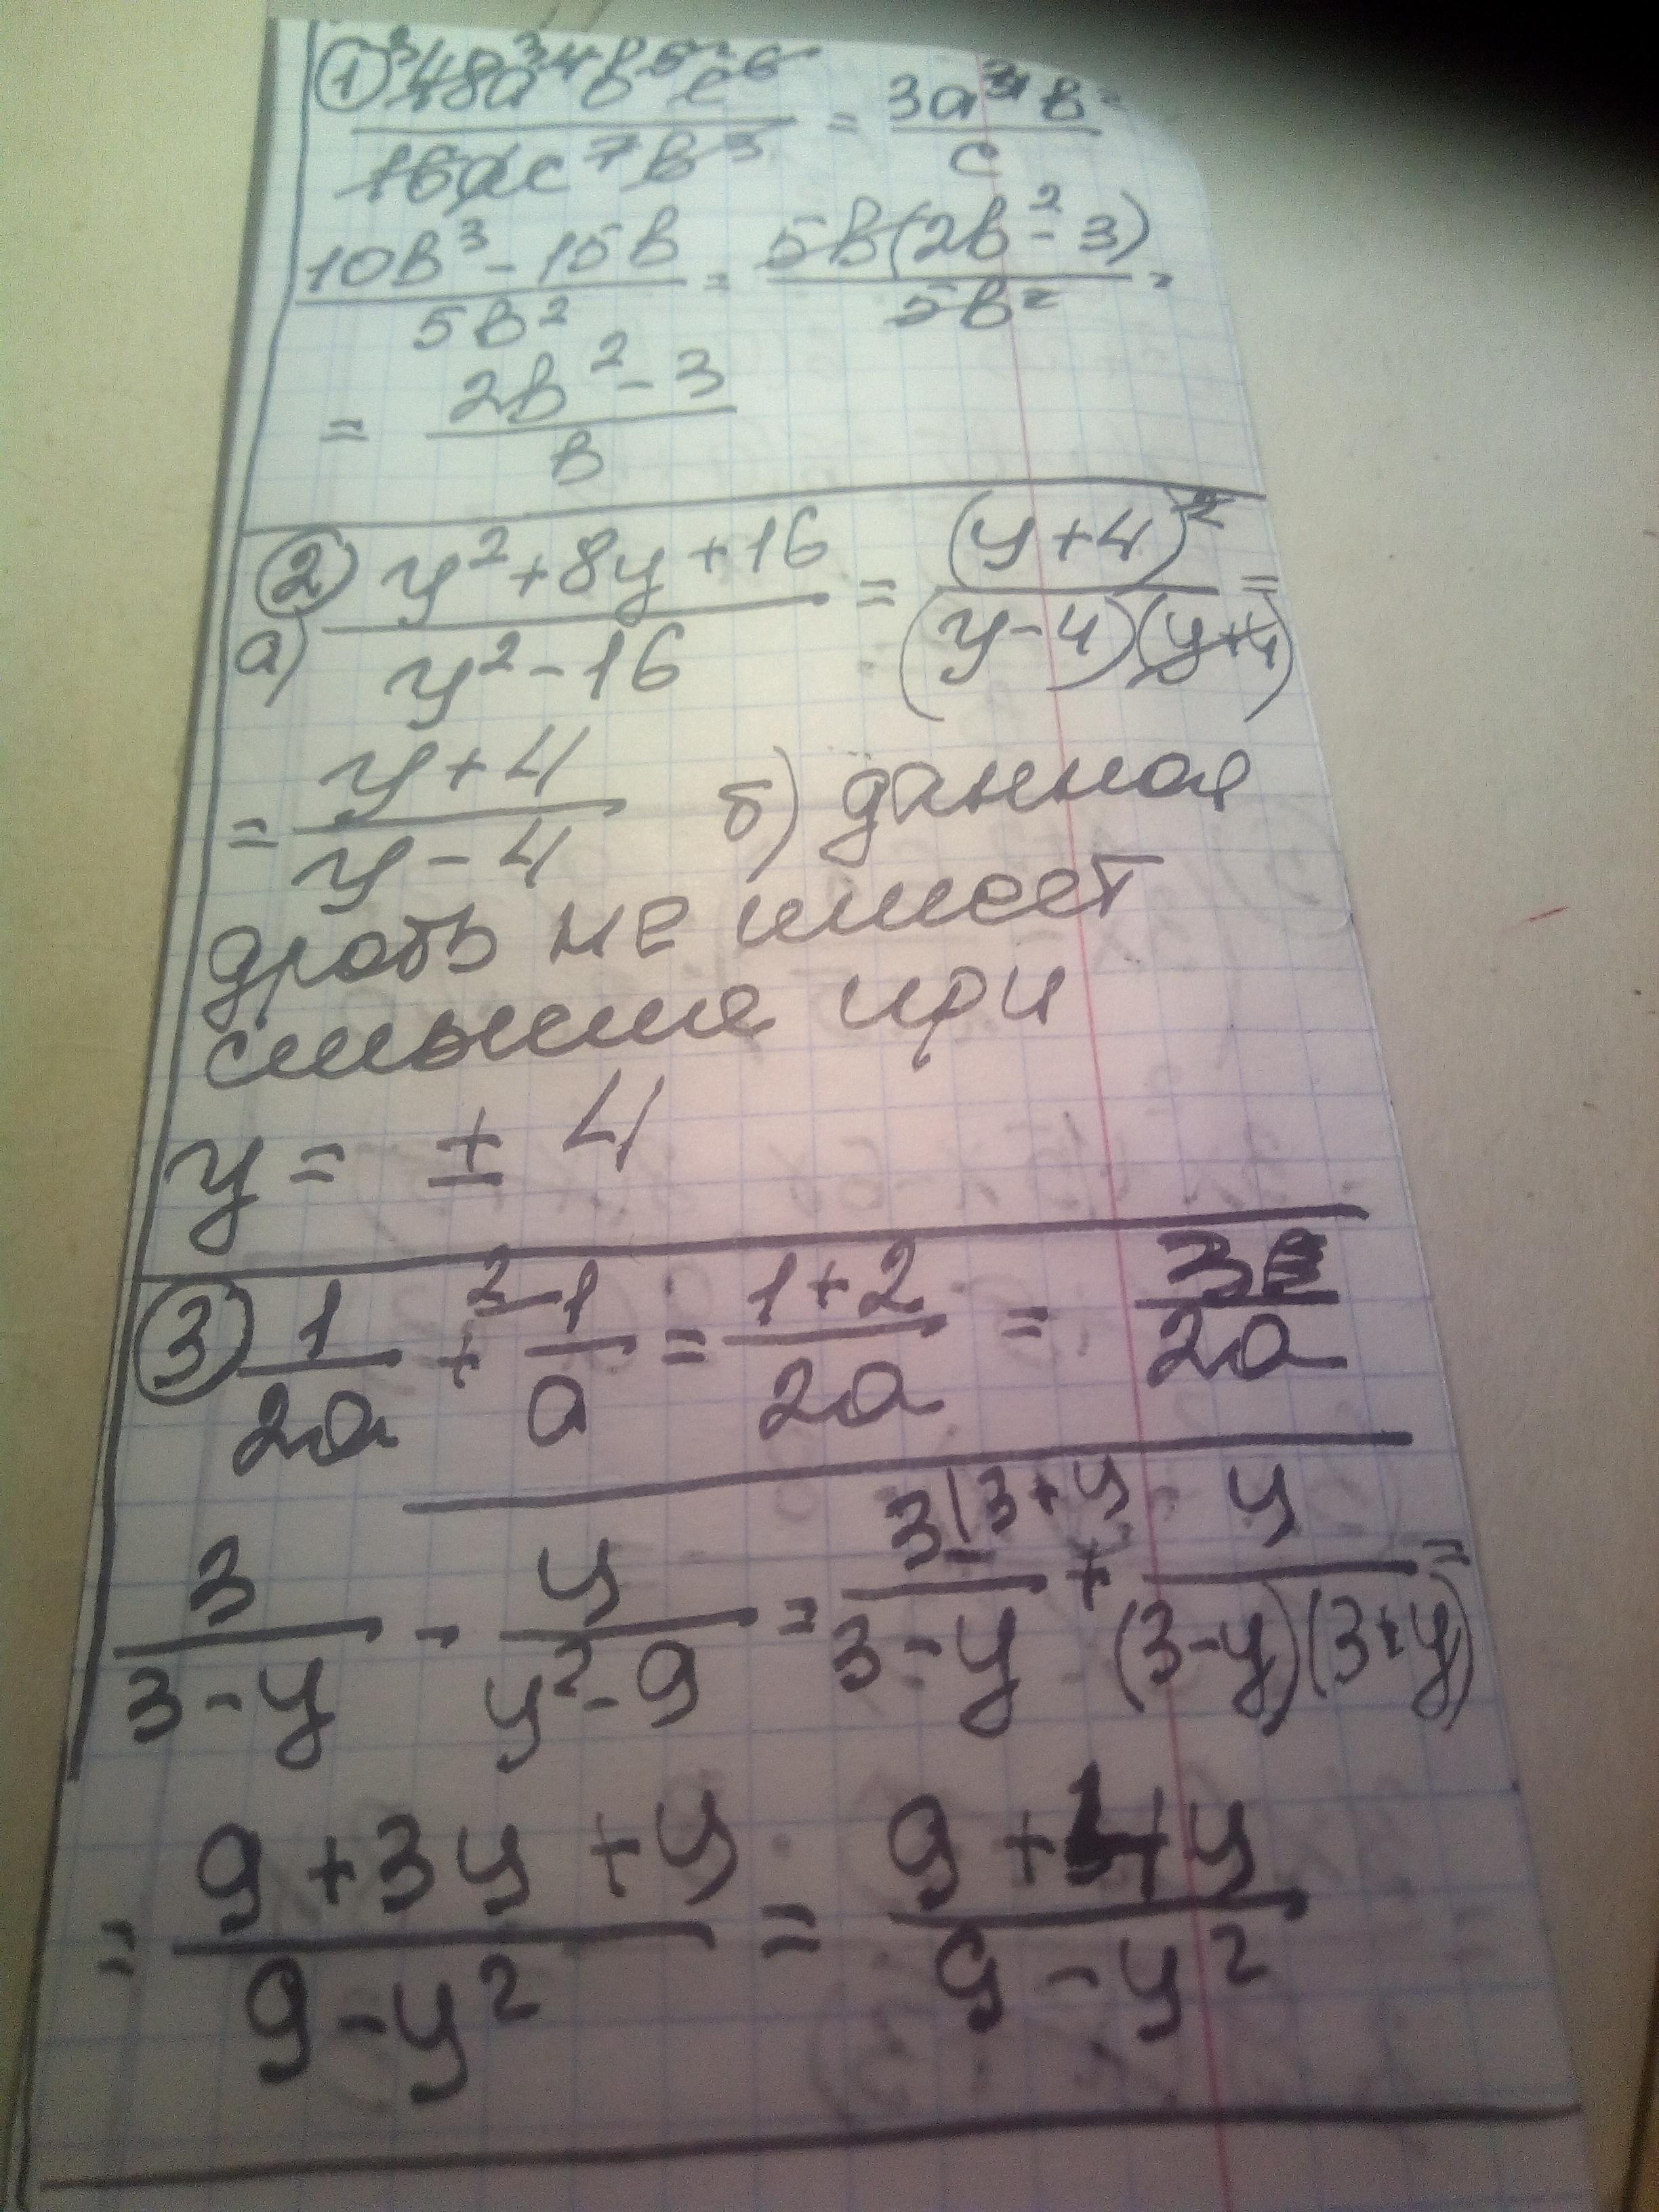 ① ³48a³⁴b⁵²c⁶ / 16ac⁷b³ = 3a³b² / c
10b³ - 15b / 5b² = 5b(2b² - 3) / 5b² =
= 2b² - 3 / b
② а) y² + 8y + 16 / y² - 16 = (y + 4)² / (y - 4)(y + 4) =
= y + 4 / y - 4 б) данная
дробь не имеет
смысла при
y = ± 4
③ 1 / 2a + 2-1 / a = 1 + 2 / 2a = 3 / 2a
3 / 3 - y - y / y² - 9 = 3(3 + y / 3 - y + y / (3 - y)(3 + y) =
= 9 + 3y + y / 9 - y² = 9 + 4y / 9 - y²